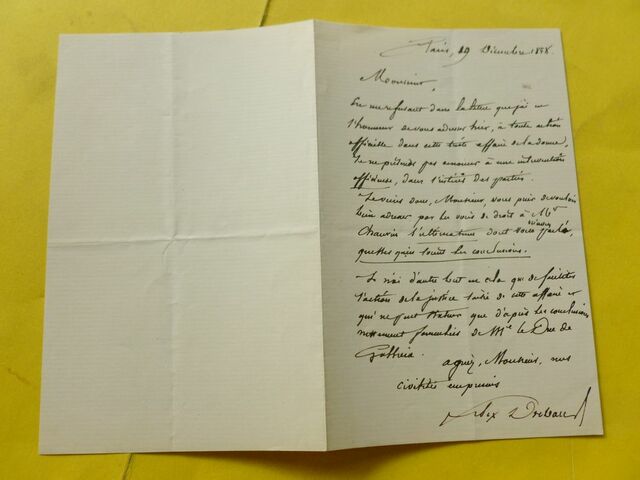 Paris, 29 Décembre 1888.
Monsieur,
En me refusant dans la lettre que j'ai eu
l'honneur de vous adresser hier, à toute action
officielle dans cette triste affaire
Je ne prétends pas renoncer à une intervention
officieuse, dans l'intérêt des parties.
Je viens donc, Monsieur, vous prier de vouloir
bien adresser par les voies de droit à Mr
Chauvin l'alternative dont vous parlez,
quelles qu'en soient les conclusions.
Je n'ai d'autre but en cela que de faciliter
l'action de la justice saisie de cette affaire et
qui ne peut statuer que d'après les conclusions
nettement formulées de Mr le Duc de
Galliera.
agréez, Monsieur, mes
civilités empressées